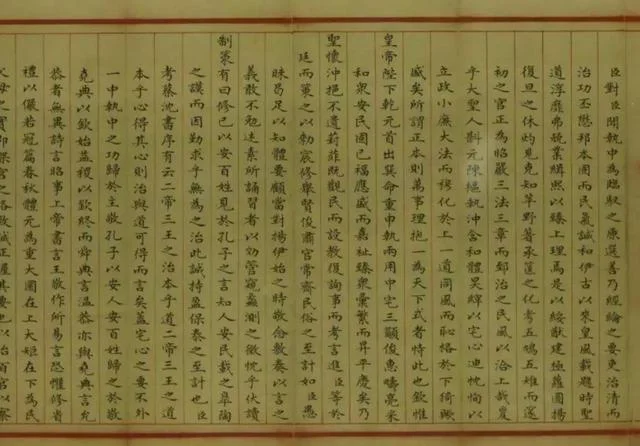 臣對臣聞執中為臨馭之原選善乃經綸之要吏治清而
治功丕懋邦本固而民氣誠和伊古以來皇風載颺時聖
道淳靡弗兢業緝熙以臻上理焉是以綏猷建極蘿圖揚
復旦之休灼見克知草野著承筐之化考五鳩五雉而選
初之官正為昭嚴三法三章而郅治之民風以洽上哉夐
乎大聖人斟元陳樞執沖含和體昊縡以宅心迪忱恂以
立政小廉大法而穆化於上一道同風而恥格於下猗歟
盛矣所謂正本則萬事理抱一為天下式者恃此也欽惟
皇帝陛下乾元首出巽命重申執兩用中宅三顯俊惠疇亮采
和衆安民固已福應盛而嘉祉臻衆彙繁而昇平慶矣乃
聖懷沖挹不遺葑菲既觀民而設教復詢事而考言進臣等於
廷而策之以勑宸修舉賢俊肅官常齊民俗之至計如臣愚
昧曷足以知體要顧當對揚伊始之時敬念敷奏以言之
義敢不勉述素所誦習者以効管窺蠡測之微忱乎伏讀
制策有曰修己以安百姓見於孔子之言知人安民載之皋陶
之謨而因勤求乎無為之治此誠持盈保泰之至計也臣
考蔡沈書序有云二帝三王之治本乎道二帝三王之道
本乎心得其心則治與道可得而言矣蓋宅心之要不外
一中執中之功歸於主敬孔子以安人安百姓歸之於敬
堯典以欽始益稷以欽終而舜典言溫恭亦與堯典言允
恭者無異詩言昭事上帝書言王敬作所易言恐懼修省
禮以儼若冠篇春秋體元為重大圜在上大矩在下為民